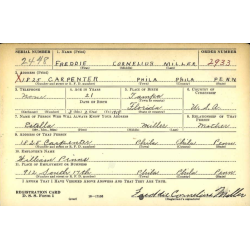 SERIAL NUMBER 1. NAME (Print) ORDER NUMBER
2498 FREDDIE CORNELIUS MILLER 2933
2. ADDRESS (Print)
1828 CARPENTER PHILA PHILA PENN
3. TELEPHONE 4. AGE IN YEARS 5. PLACE OF BIRTH 6. COUNTRY OF CITIZENSHIP
None 21 Tampa
DATE OF BIRTH
Florida U.S.A.
7. NAME OF PERSON WHO WILL ALWAYS KNOW YOUR ADDRESS 8. RELATIONSHIP OF THAT PERSON
Estella Miller Mother
9. ADDRESS OF THAT PERSON
1828 Carpenter Phila Penn
10. EMPLOYER'S NAME
William
11. PLACE OF EMPLOYMENT OR BUSINESS
912 South 17th Phila Penn
I AFFIRM THAT I HAVE VERIFIED ABOVE ANSWERS AND THAT THEY ARE TRUE.
REGISTRATION CARD
D. S. S. FORM 1
Freddie Cornelius Miller